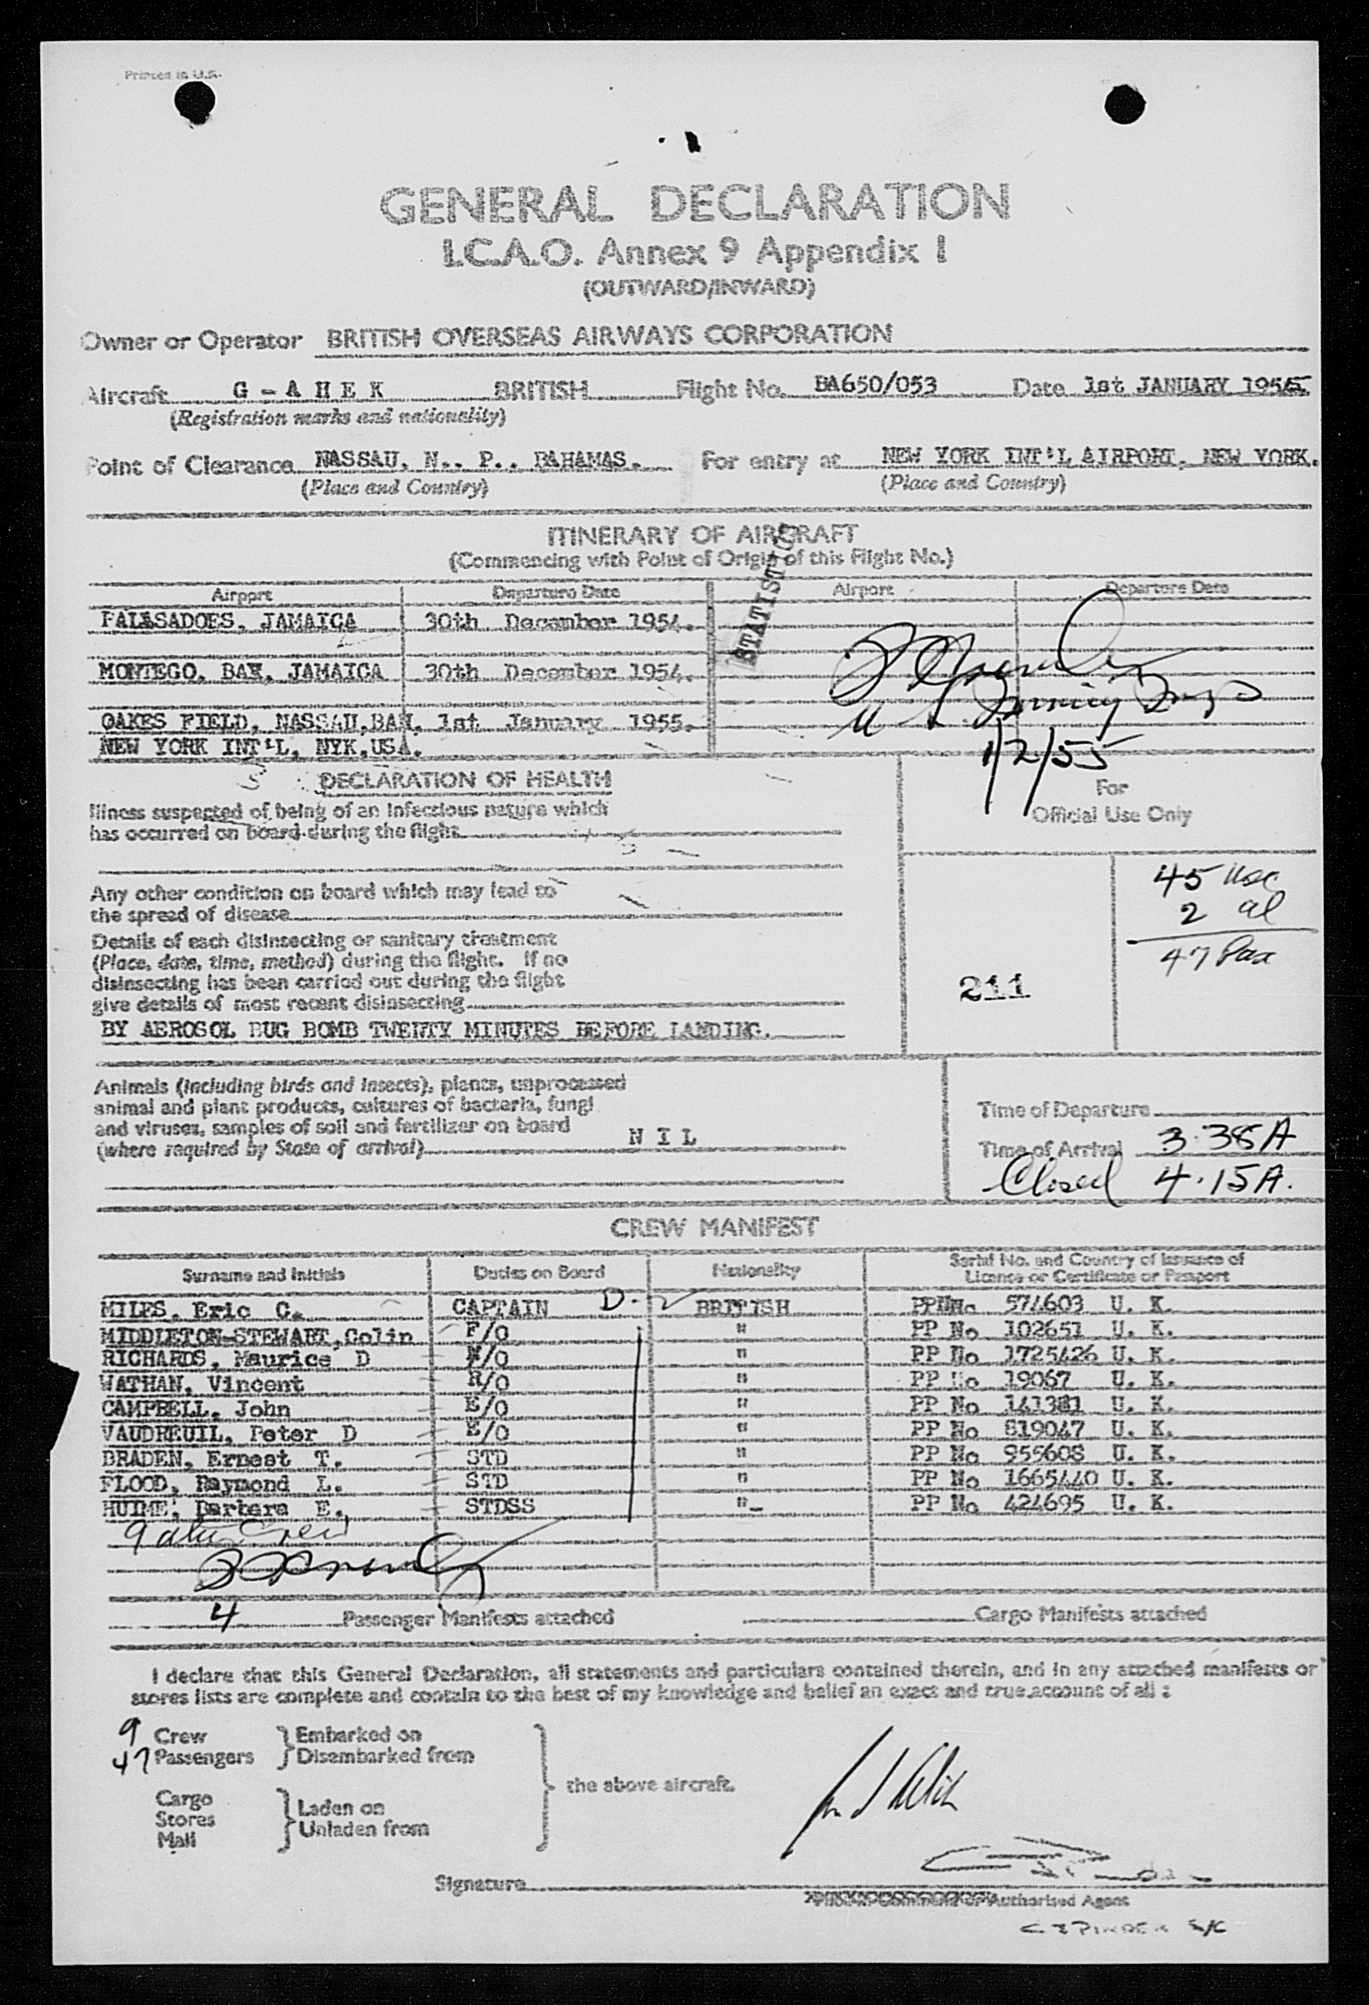 Printed in U.K.
GENERAL DECLARATION
I.C.A.O. Annex 9 Appendix I
(OUTWARD/INWARD)
Owner or Operator BRITISH OVERSEAS AIRWAYS CORPORATION
Aircraft G - A H E K BRITISH Flight No. BA650/053 Date 1st JANUARY 1955.
(Registration marks and nationality)
Point of Clearance NASSAU, N.. P., BAHAMAS. For entry at NEW YORK INT'L AIRPORT, NEW YORK.
(Place and Country) (Place and Country)
ITINERARY OF AIRCRAFT
(Commencing with Point of Origin of this Flight No.)
Airport Departure Date Airport Departure Date
STATISTICS
PALASADOES, JAMAICA 30th December 1954.
MONTEGO, BAY, JAMAICA 30th December 1954.
OAKES FIELD, NASSAU, BAH. 1st January 1955.
NEW YORK INT'L, NYK, USA.
1/2/55
DECLARATION OF HEALTH
For
Official Use Only
Illness suspected of being of an infectious nature which
has occurred on board during the flight
Any other condition on board which may lead to
the spread of disease
45 usc
2 al
47 Pax
Details of each disinsecting or sanitary treatment
(Place, date, time, method) during the flight. If no
disinsecting has been carried out during the flight
give details of most recent disinsecting
211
BY AEROSOL BUG BOMB TWENTY MINUTES BEFORE LANDING.
Animals (including birds and insects), plants, unprocessed
animal and plant products, cultures of bacteria, fungi
and viruses, samples of soil and fertilizer on board
(where required by State of arrival) N I L
Time of Departure
Time of Arrival 3.38A
Closed 4.15A.
CREW MANIFEST
Surname and Initials Duties on Board Nationality Serial No. and Country of Issuance of
Licence or Certificate or Passport
MILES, Eric C. CAPTAIN D-2 BRITISH PP No 574603 U. K.
MIDDLETON-STEWART, Colin F/O " PP No 102651 U. K.
RICHARDS, Maurice D /O " PP No 1725426 U. K.
WATHAN, Vincent R/O " PP No 19067 U. K.
CAMPBELL, John E/O " PP No 141381 U. K.
VAUDREUIL, Peter D E/O " PP No 819047 U. K.
BRADEN, Ernest T. STD " PP No 955608 U. K.
FLOOD, Raymond L. STD " PP No 1665440 U. K.
HULME, Barbara E. STDSS " PP No 424695 U. K.
9 alien Crew
4 Passenger Manifests attached Cargo Manifests attached
I declare that this General Declaration, all statements and particulars contained therein, and in any attached manifests or
stores lists are complete and contain to the best of my knowledge and belief an exact and true account of all :
9 Crew } Embarked on
47 Passengers } Disembarked from
the above aircraft.
Cargo
Stores } Laden on
Mail } Unladen from
Signature
Authorised Agent
C E PINDER S/C